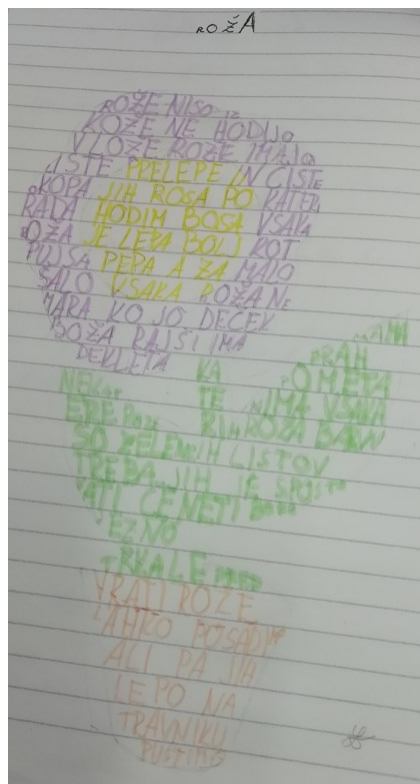 ROŽA
ROŽE NISO IZ
KOŽE NE HODIJO
V LOŽE ROŽE IMAJO
LISTE PRELEPE IN ČISTE
OKOPA JIH ROSA PO KATERI
RADA HODIM BOSA VSAKA
ROŽA JE LEPA BOLJ KOT
PUJSA PEPA A ZA MALO
ŠALO VSAKA ROŽA NE
MARA KO JO DEČEK
BOŽA RAJŠI IMA
DEKLETA
MAMA
KA PRAH
NEKAT TE POMETA
ERE ROŽE RIH NIMA VSAKA
SO ZELENIH ROŽA BARV
LISTOV
TREBA JIH JE SPOŠTO
VATI ČE NE TI BODO
JEZNO
TRKALE PRED
VRATI ROŽE
LAHKO POSADIMO
ALI PA JIH
LEPO NA
TRAVNIKU
PUSTIMO